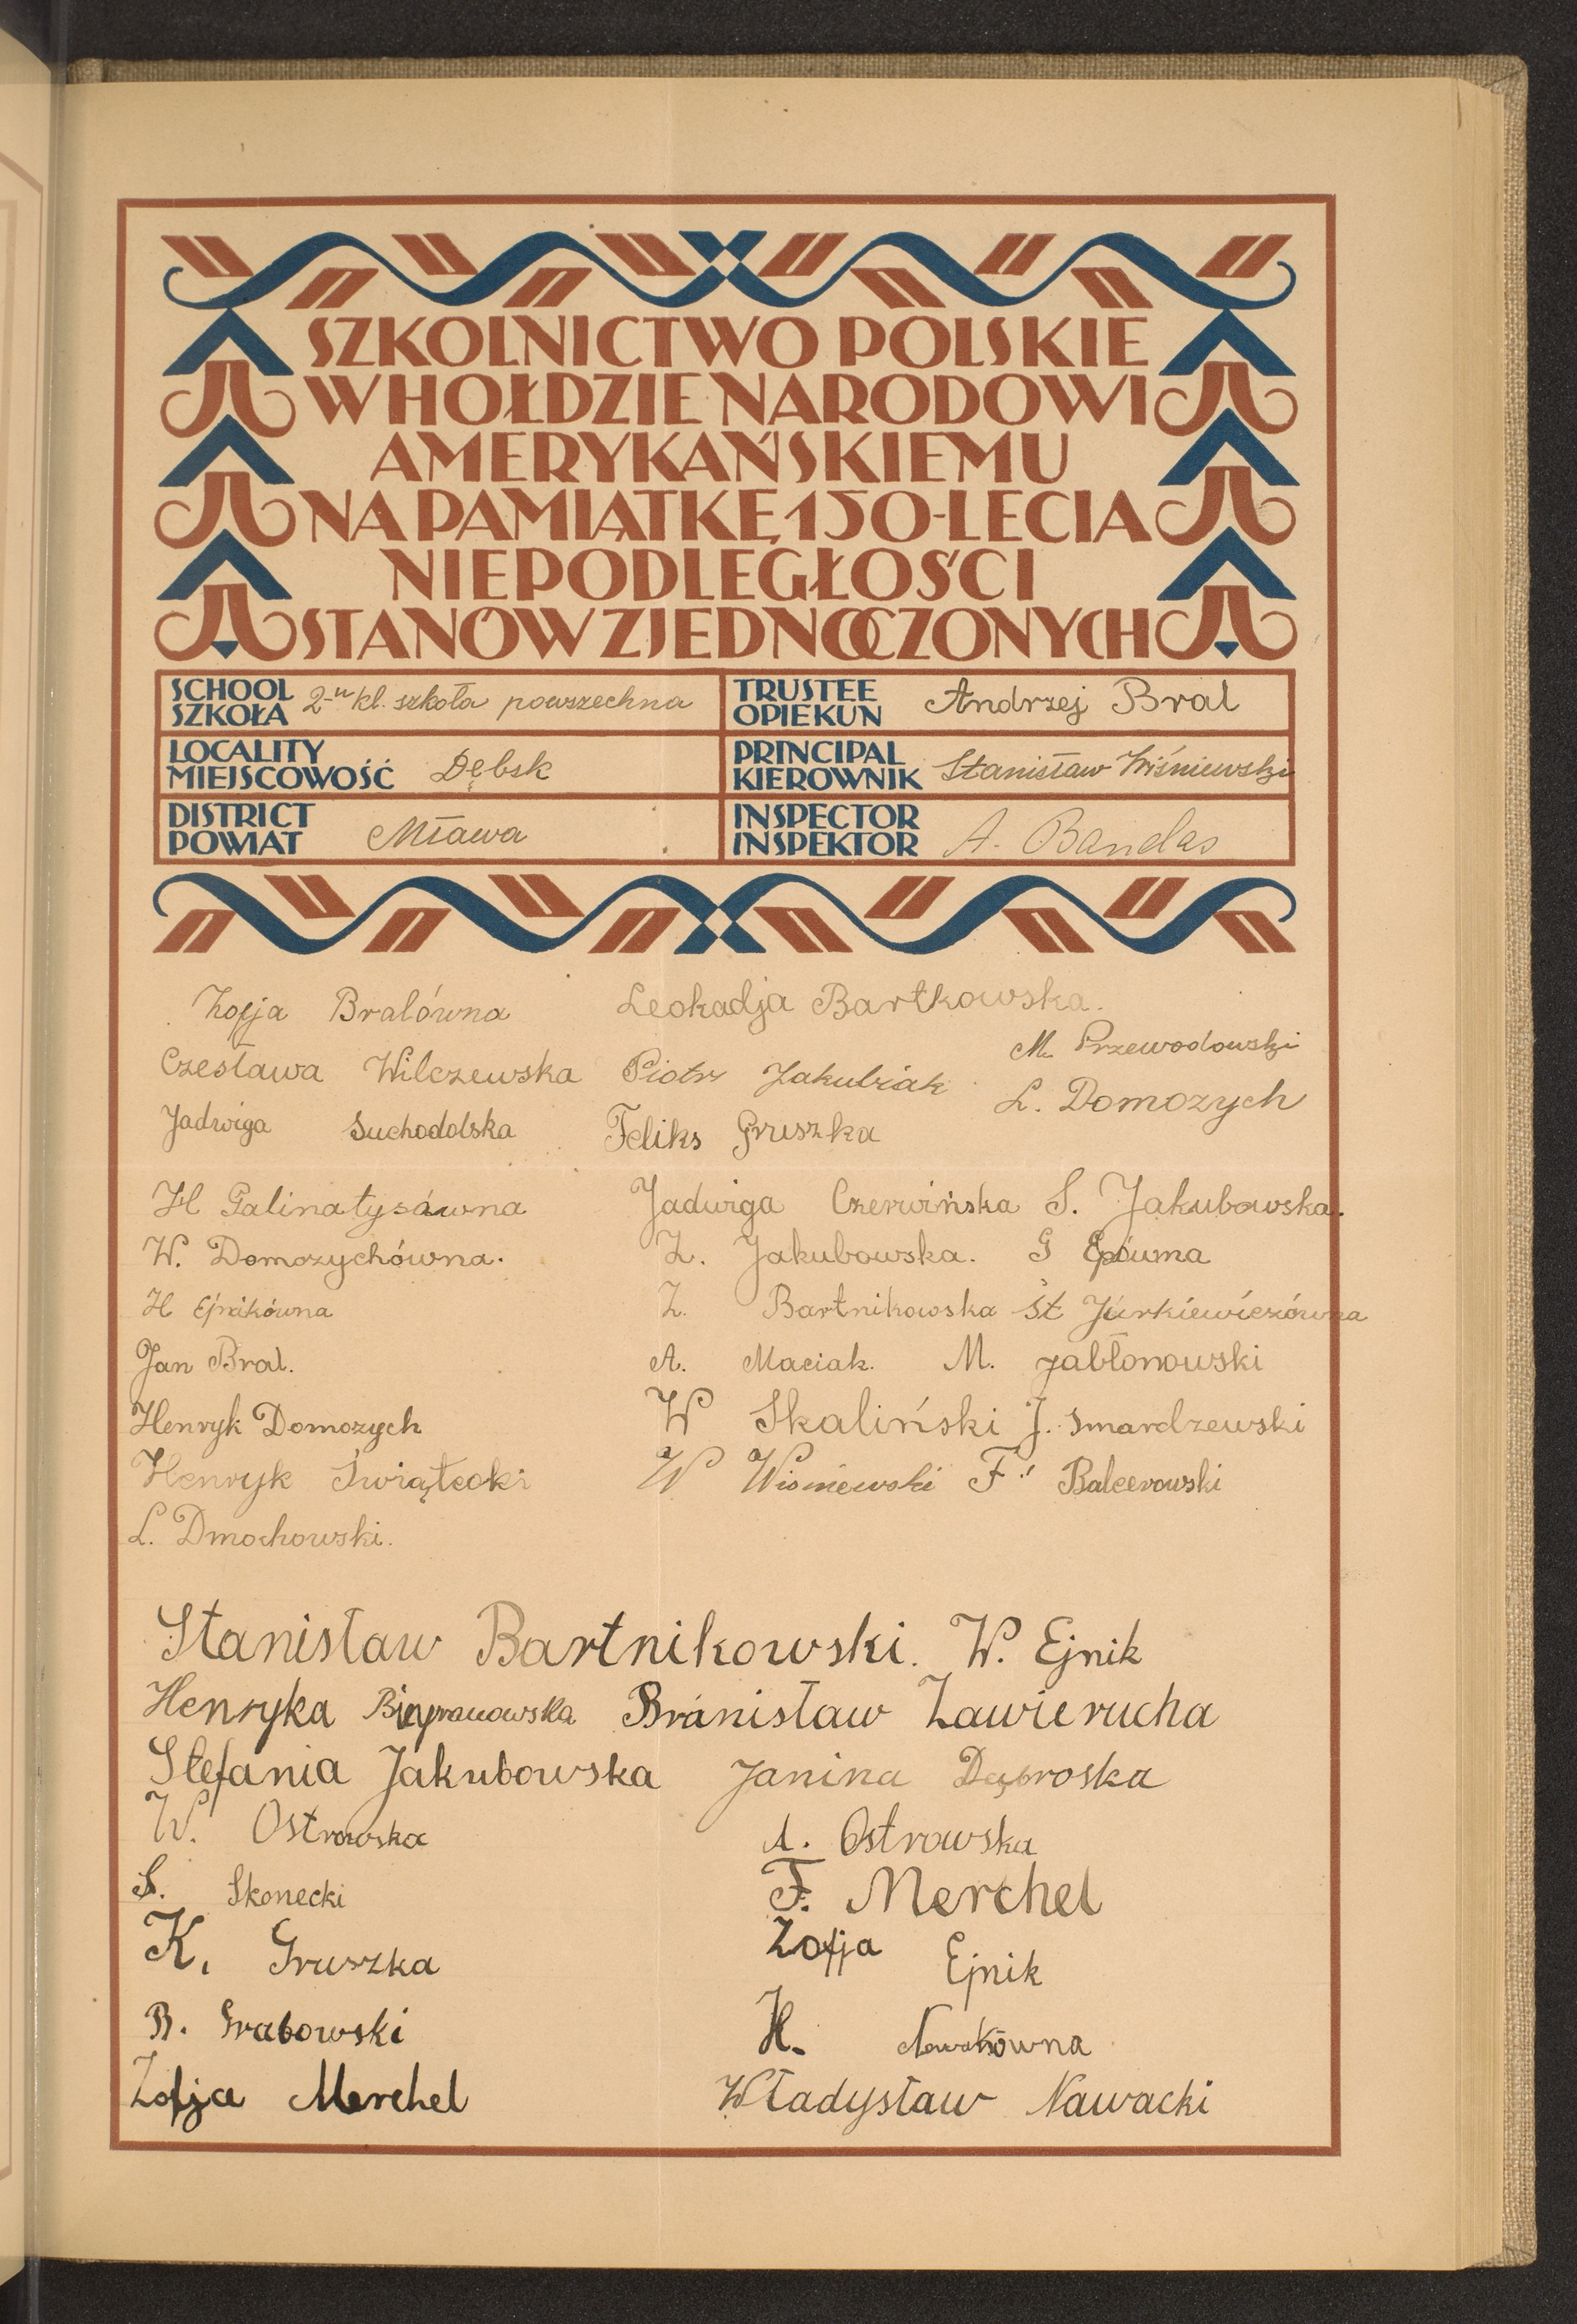 SZKOLNICTWO POLSKIE
W HOŁDZIE NARODOWI
AMERYKAŃSKIEMU
NA PAMIĄTKĘ 150-LECIA
NIEPODLEGŁOŚCI
STANÓW ZJEDNOCZONYCH
SCHOOL
SZKOŁA 2-u kl. szkoła powszechna
TRUSTEE
OPIEKUN Andrzej Bral
LOCALITY
MIEJSCOWOŚĆ Dębsk
PRINCIPAL
KIEROWNIK Stanisław Wiśniewski
DISTRICT
POWIAT Mława
INSPECTOR
INSPEKTOR A. Bandas
Zofja Bralówna Leokadja Bartkowska.
M. Przewodowski
Czesława Wilczewska Piotr Jakubiak
L. Domozych
Jadwiga Suchodolska Feliks Gruszka
H Galinatysówna Jadwiga Czerwińska S. Jakubowska.
W. Domozychówna. Z. Jakubowska. G
H Ejnikówna Z. Bartnikowska St Jurkiewiczówna
Jan Bral. A. Maciak. M. Jabłonowski
Henryk Domozych W Skaliński J. Smardzewski
Henryk Świątecki W Wiśniewski F. Balcerowski
L. Dmochowski.
Stanisław Bartnikowski. W. Ejnik
Henryka Branisław Zawierucha
Stefania Jakubowska Janina Dąbroska
W. Ostrowska A. Ostrowska
S. Skonecki F. Merchel
K. Gruszka Zofja Ejnik
B. Grabowski H. Nowakówna
Zofja Merchel Władysław Nawacki